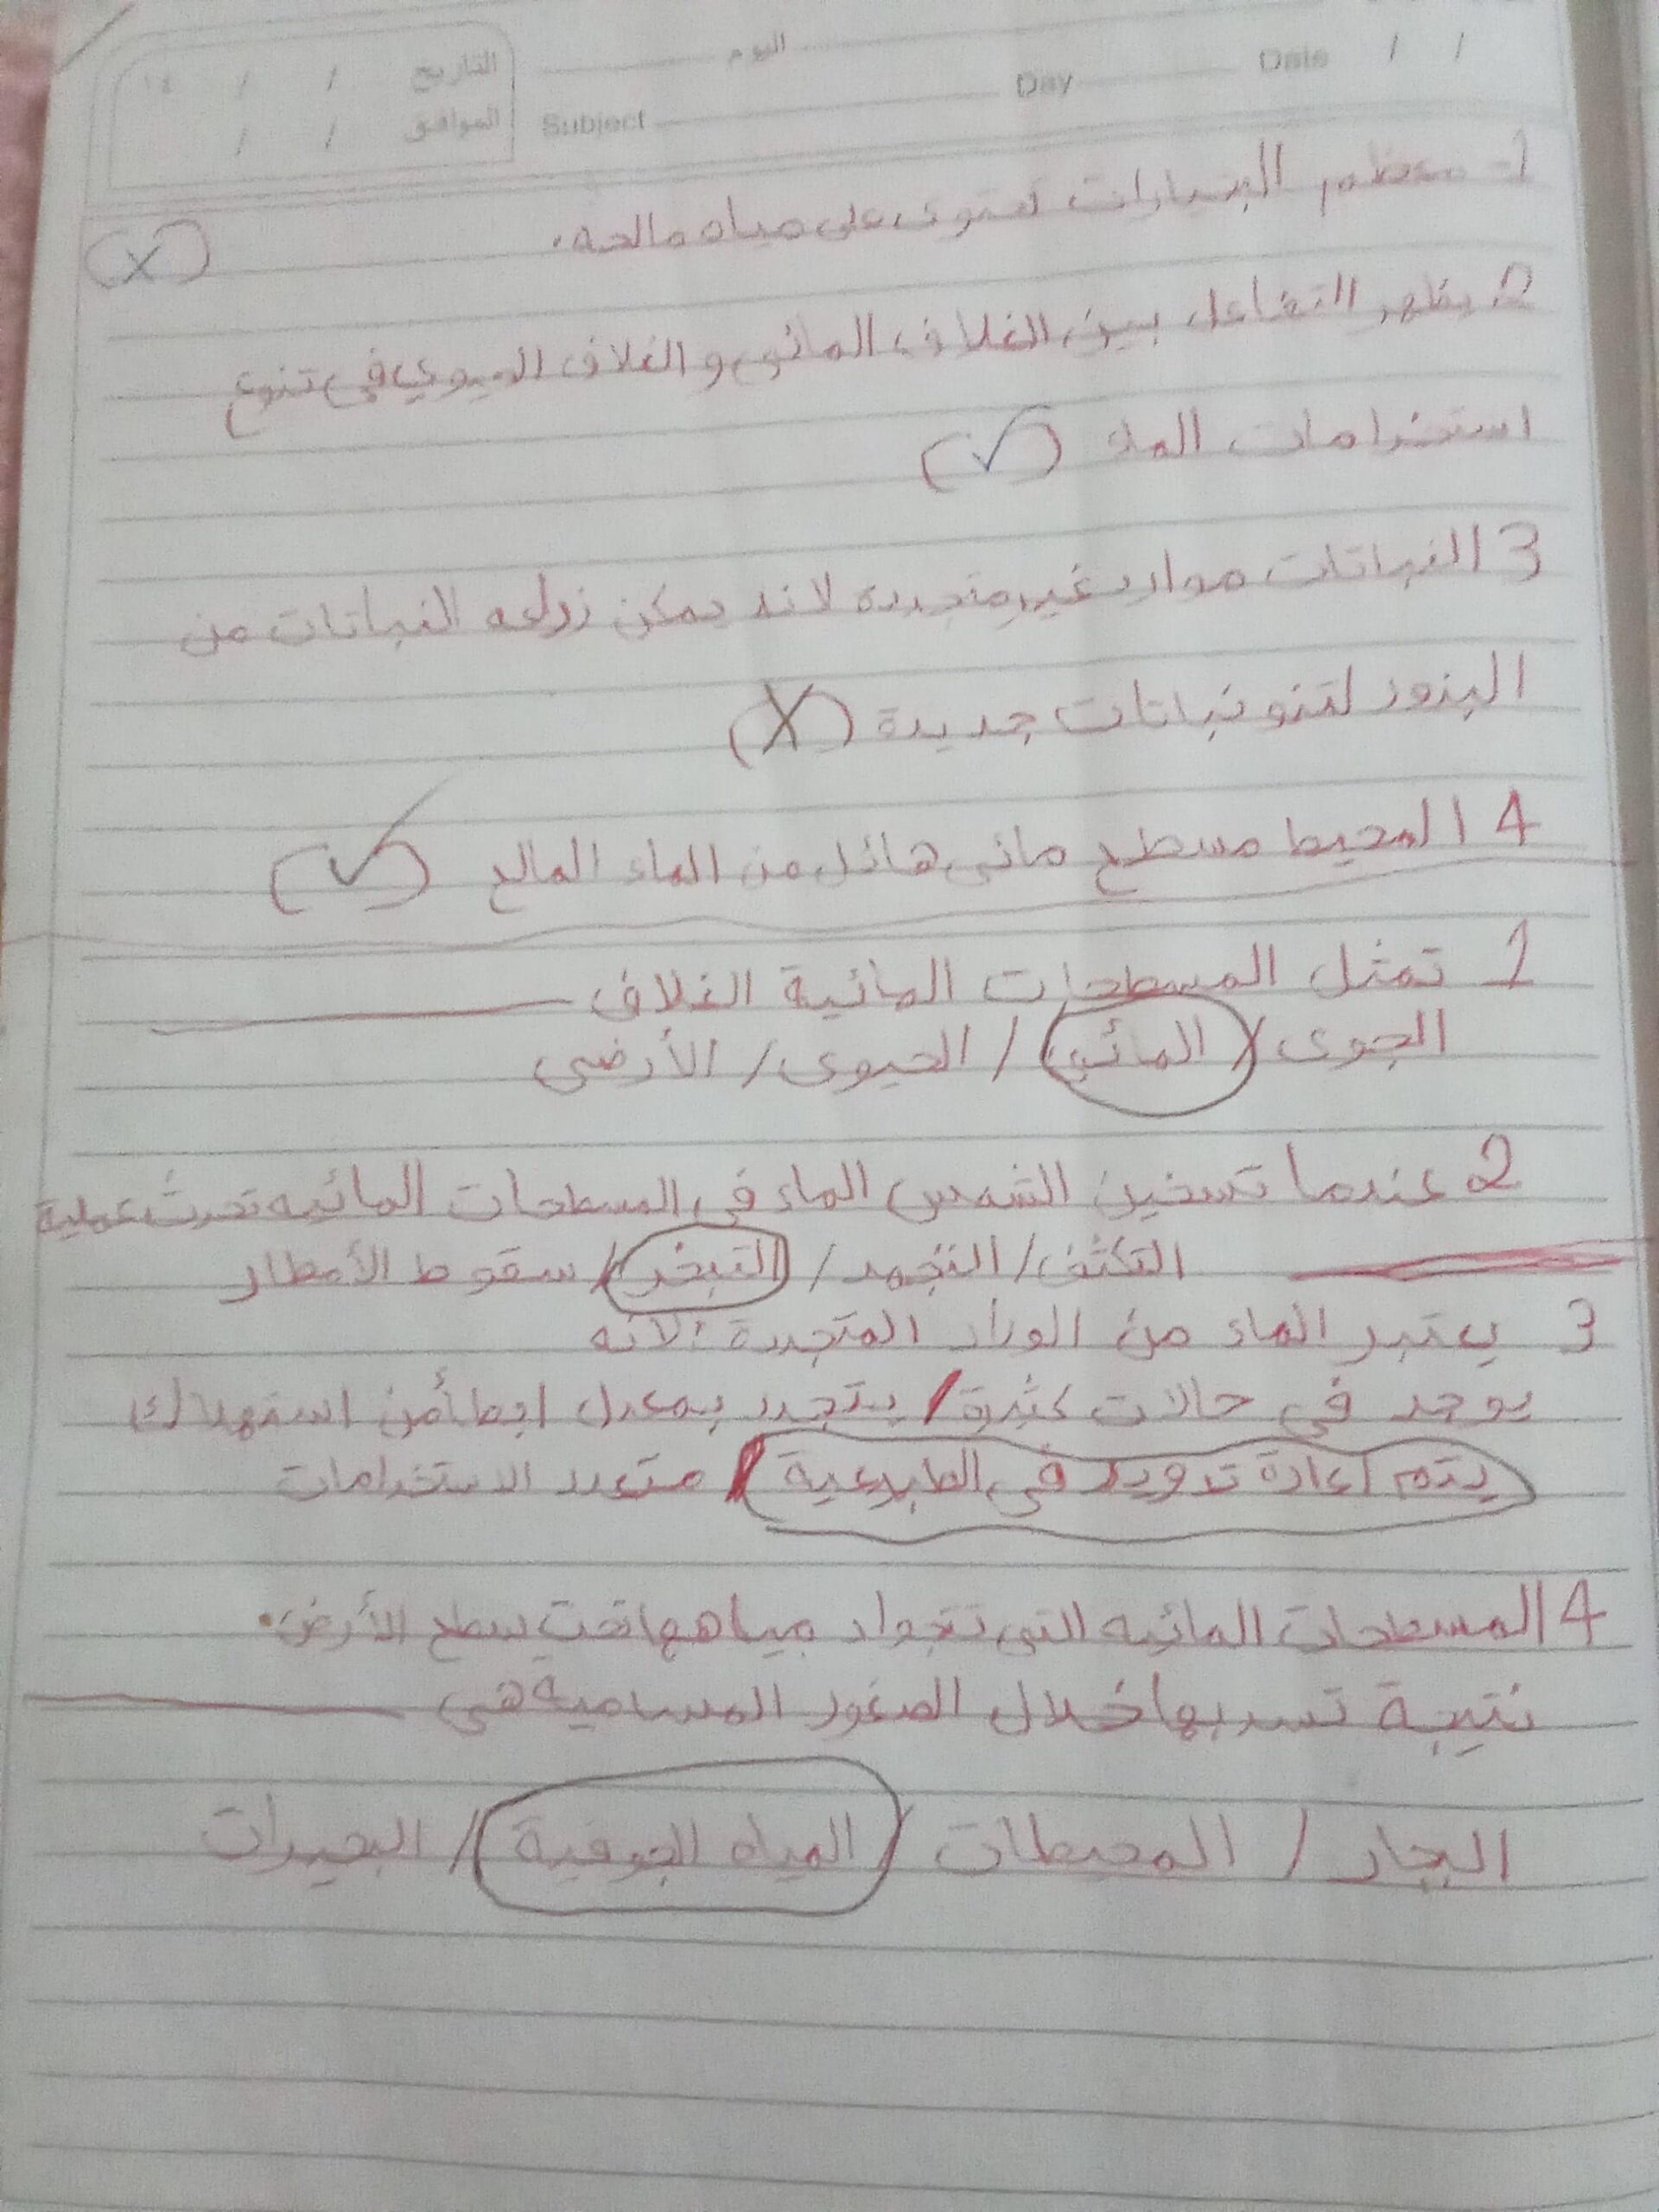 التاريخ / / ١٤ اليوم
الموافق / / Subject Day Date / /
1- معظم البحيرات تحتوى على مياه مالحه. (X)
2 يظهر التفاعل بين الغلاف المائى والغلاف الحيوي في تنوع
استخدامات الماء (✓)
3 النباتات موارد غير متجددة لانه يمكن زراعه النباتات من
البذور لتنمو نباتات جديدة (X)
4 المحيط مسطح مائى هائل من الماء المالح (✓)
1 تمثل المسطحات المائية الغلاف
الجوى / المائي / الحيوى / الأرضى
2 عندما تسخين الشمس الماء في المسطحات المائيه تحدث عملية
التكثف / التجمد / التبخر / سقوط الأمطار
3 يعتبر الماء من الوراد المتجددة لأنه
يوجد في حالات كثيرة / يتجدد بمعدل ابطأ من استهلاك
يتم اعادة تدويره في الطبيعية / متعدد الاستخدامات
4 المسطحات المائيه التى تتواد مياهها تحت سطح الأرض.
نتيجة تسربها خلال الصخور المساميه هى
البحار / المحيطات / المياه الجوفية / البحيرات